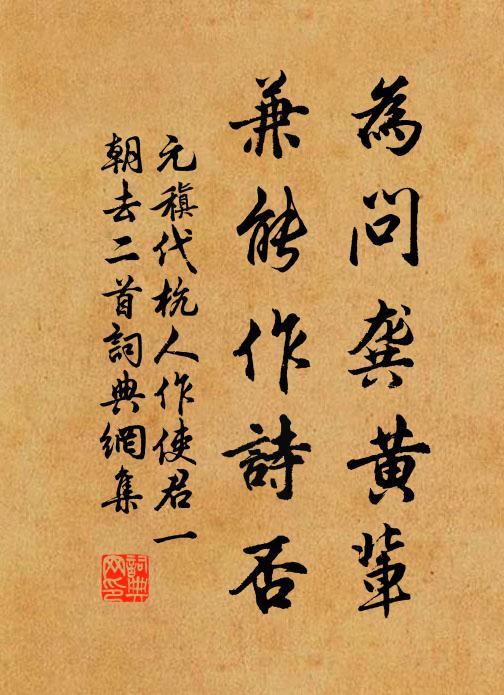 為問龔黄輩
兼能作詩否
元稹代杭人作使君一
朝去二首詞典網集
詞典网印